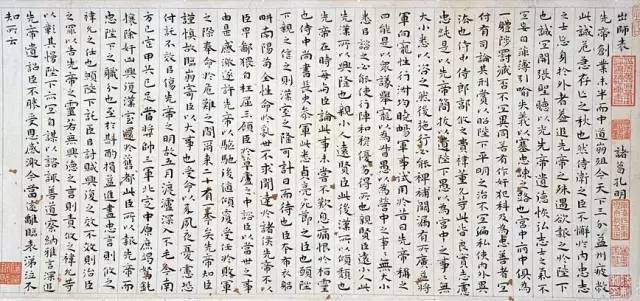 出師表 諸葛孔明
先帝創業未半而中道崩殂今天下三分益州疲敝
此誠危急存亡之秋也然侍衛之臣不懈於內忠志
之士忘身於外者蓋追先帝之殊遇欲報之於陛下
也誠宜開張聖聽以光先帝遺德恢弘志士之氣不
宜妄自菲薄引喻失義以塞忠諫之路也宮中府中俱為
一體陟罰臧否不宜異同若有作奸犯科及為忠善者宜
付有司論其刑賞以昭陛下平明之治不宜偏私使內外異
法也侍中侍郎郭攸之費禕董允等此皆良實志慮
忠純是以先帝簡拔以遺陛下愚以為宮中之事事無
大小悉以咨之然後施行必能裨補闕漏有所廣益將
軍向寵性行淑均曉暢軍事試用於昔日先帝稱之
曰能是以眾議舉寵以為督愚以為營中之事事無大小
悉以諮之必能使行陣和穆優劣得所也親賢臣遠小人此
先漢所以興隆也親小人遠賢臣此後漢所以傾頹也
先帝在時每與臣論此事未嘗不歎息痛恨於桓靈
也侍中尚書長史參軍此悉貞亮死節之臣也願陛
下親之信之則漢室之隆可計日而待也臣本布衣躬
耕南陽苟全性命於亂世不求聞達於諸侯先帝不以
臣卑鄙猥自枉屈三顧臣於草廬之中諮臣以當世之事
由是感激遂許先帝以驅馳後值傾覆受任於敗軍
之際奉命於危難之間爾來二十有一年矣先帝知臣
謹慎故臨崩寄臣以大事也受命以來夙夜憂慮恐
付託不效以傷先帝之明故五月渡瀘深入不毛今南
方已定甲兵已足當獎帥三軍北定中原庶竭駑鈍
攘除奸凶興復漢室還於舊都此臣所以報先帝而
忠陛下之職分也至於斟酌損益進盡忠言則攸之
禕允之任也願陛下託臣以討賊興復之效不效則治臣
之罪以告先帝之靈若無興德之言則責攸之禕允等
以彰其慢陛下亦宜自謀以諮諏善道察納雅言深追
先帝遺詔臣不勝受恩感激今當遠離臨表涕泣不
知所云